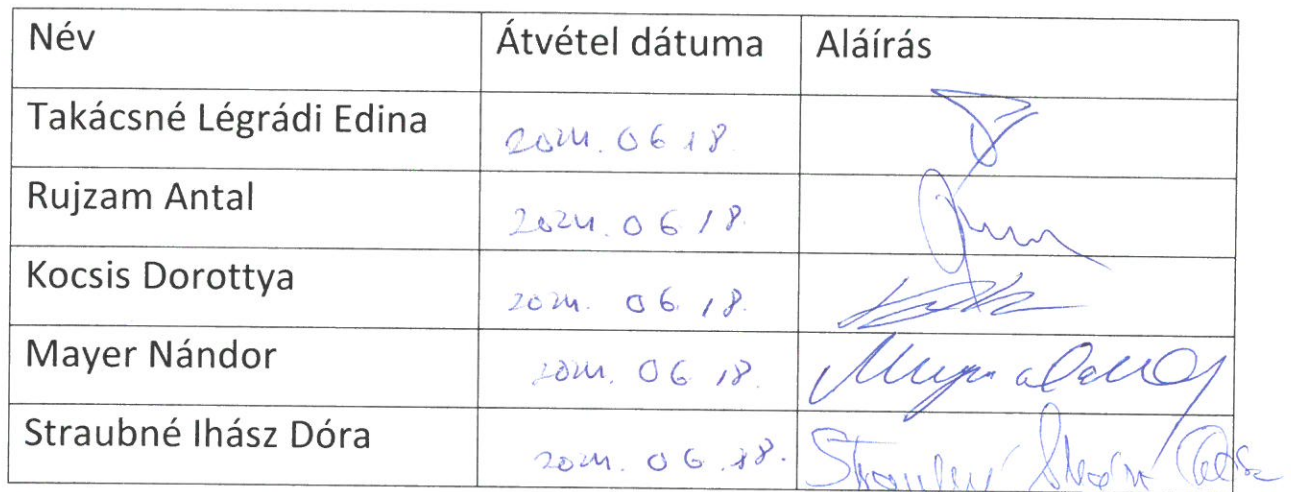 Név Átvétel dátuma Aláírás
Takácsné Légrádi Edina 2024. 06 18.
Rujzam Antal 2024. 06 18.
Kocsis Dorottya 2024. 06. 18.
Mayer Nándor 2024. 06 18.
Straubné Ihász Dóra 2024. 06. 18. Straubné